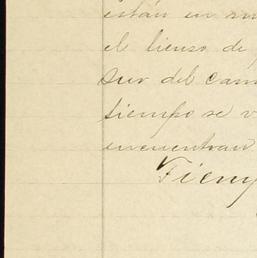 están en su
el lienzo de
Sur del cam
tiempo se v
encuentran
Tieny